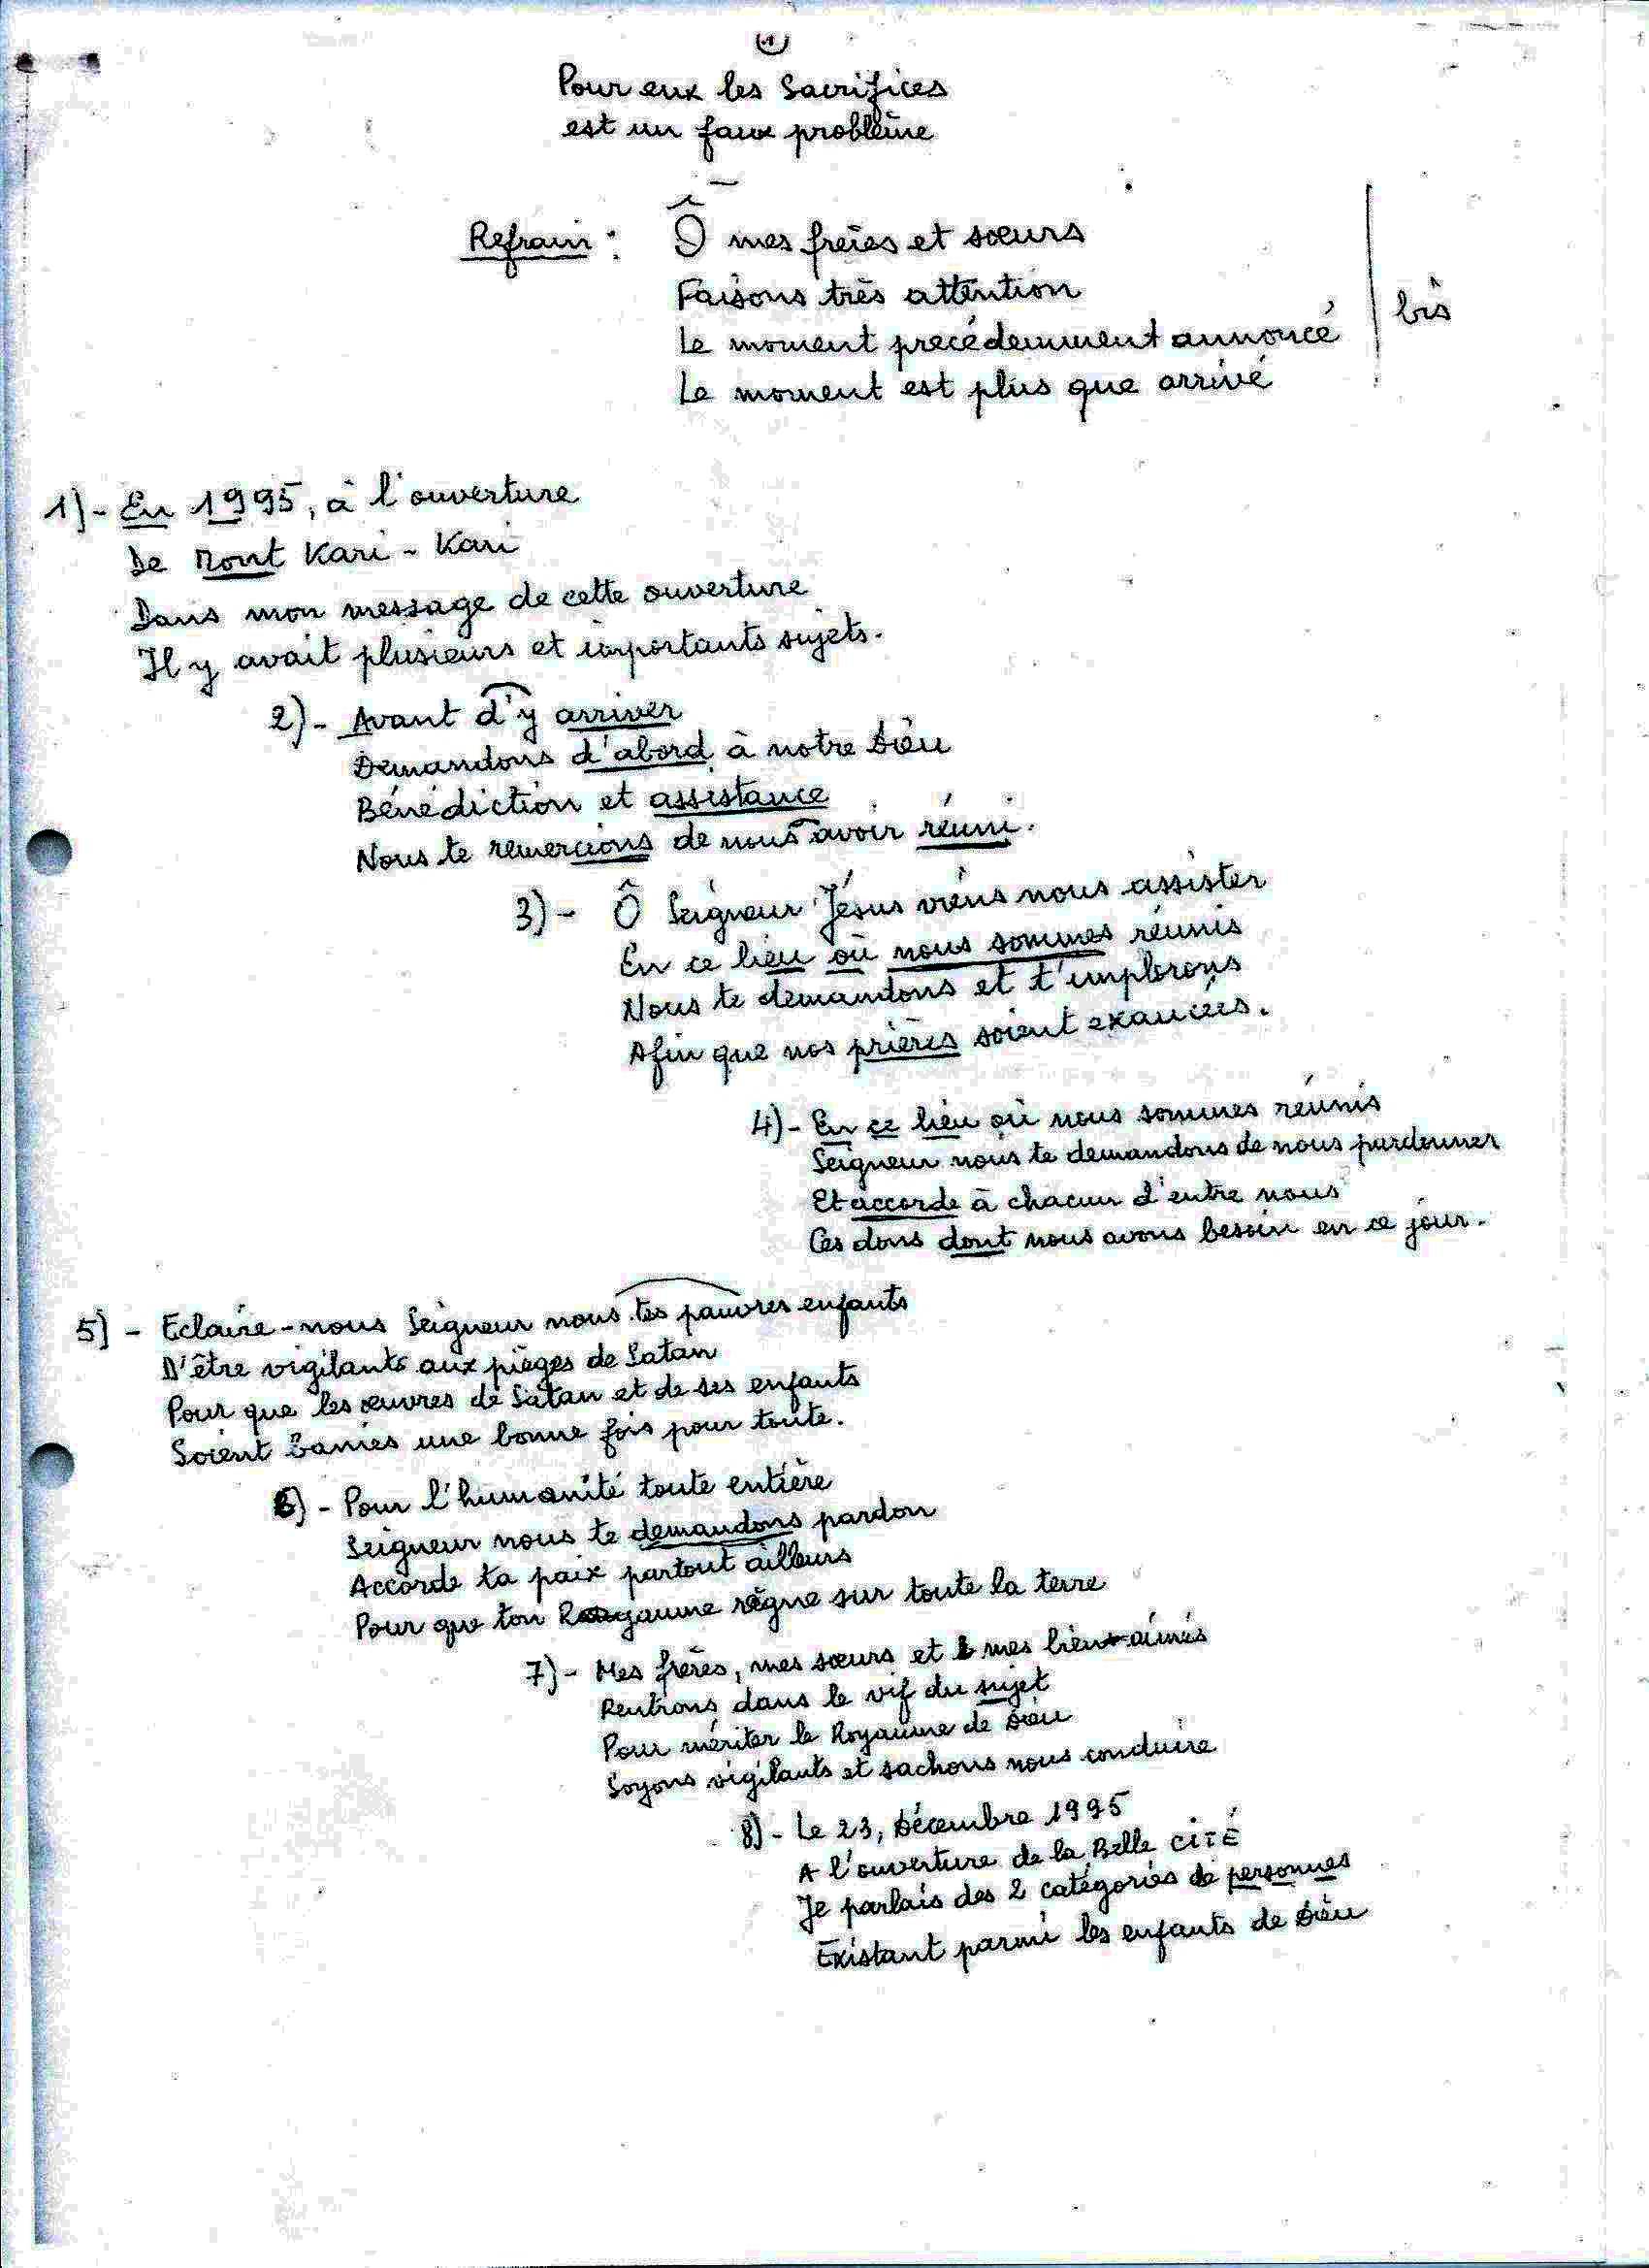 (1)
Pour eux les Sacrifices
est un faux problème
Refrain : Ô mes frères et sœurs
Faisons très attention
Le moment precédemment annoncé
Le moment est plus que arrivé
bis
1)- En 1995, à l'ouverture
De Mont Kari - Kari
Dans mon message de cette ouverture
Il y avait plusieurs et importants sujets.
2)- Avant d'y arriver
Demandons d'abord à notre Dieu
Bénédiction et assistance
Nous te remercions de nous avoir réuni.
3)- Ô Seigneur Jésus viens nous assister
En ce lieu où nous sommes réunis
Nous te demandons et t'implorons
Afin que nos prières soient exaucées.
4)- En ce lieu où nous sommes réunis
Seigneur nous te demandons de nous pardonner
Et accorde à chacun d'entre nous
Ces dons dont nous avons besoin en ce jour.
5)- Eclaire-nous Seigneur nous tes pauvres enfants
D'être vigilants aux pièges de Satan
Pour que les œuvres de Satan et de ses enfants
Soient banies une bonne fois pour toute.
6)- Pour l'humanité toute entière
Seigneur nous te demandons pardon
Accorde ta paix partout ailleurs
Pour que ton Royaume règne sur toute la terre
7)- Mes frères, mes sœurs et mes bien-aimés
Rentrons dans le vif du sujet
Pour mériter le Royaume de Dieu
Soyons vigilants et sachons nous conduire
8)- Le 23, Décembre 1995
A l'ouverture de la Belle CITÉ
Je parlais des 2 catégories de personnes
Existant parmi les enfants de Dieu